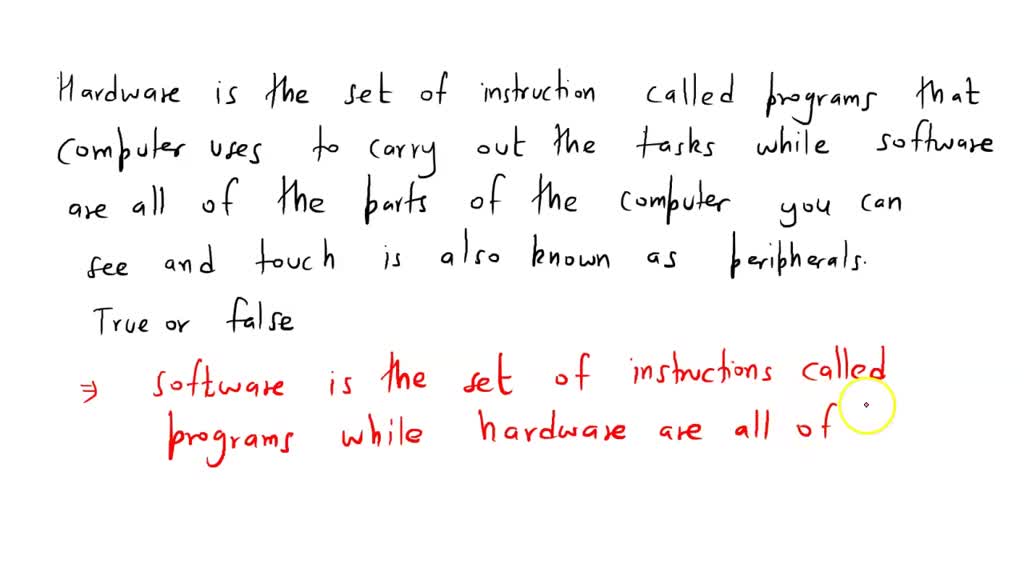 Hardware is the set of instruction called programs that
computer uses to carry out the tasks while software
are all of the parts of the computer you can
see and touch is also known as peripherals.
True or false
⇒ software is the set of instructions called
programs while hardware are all of